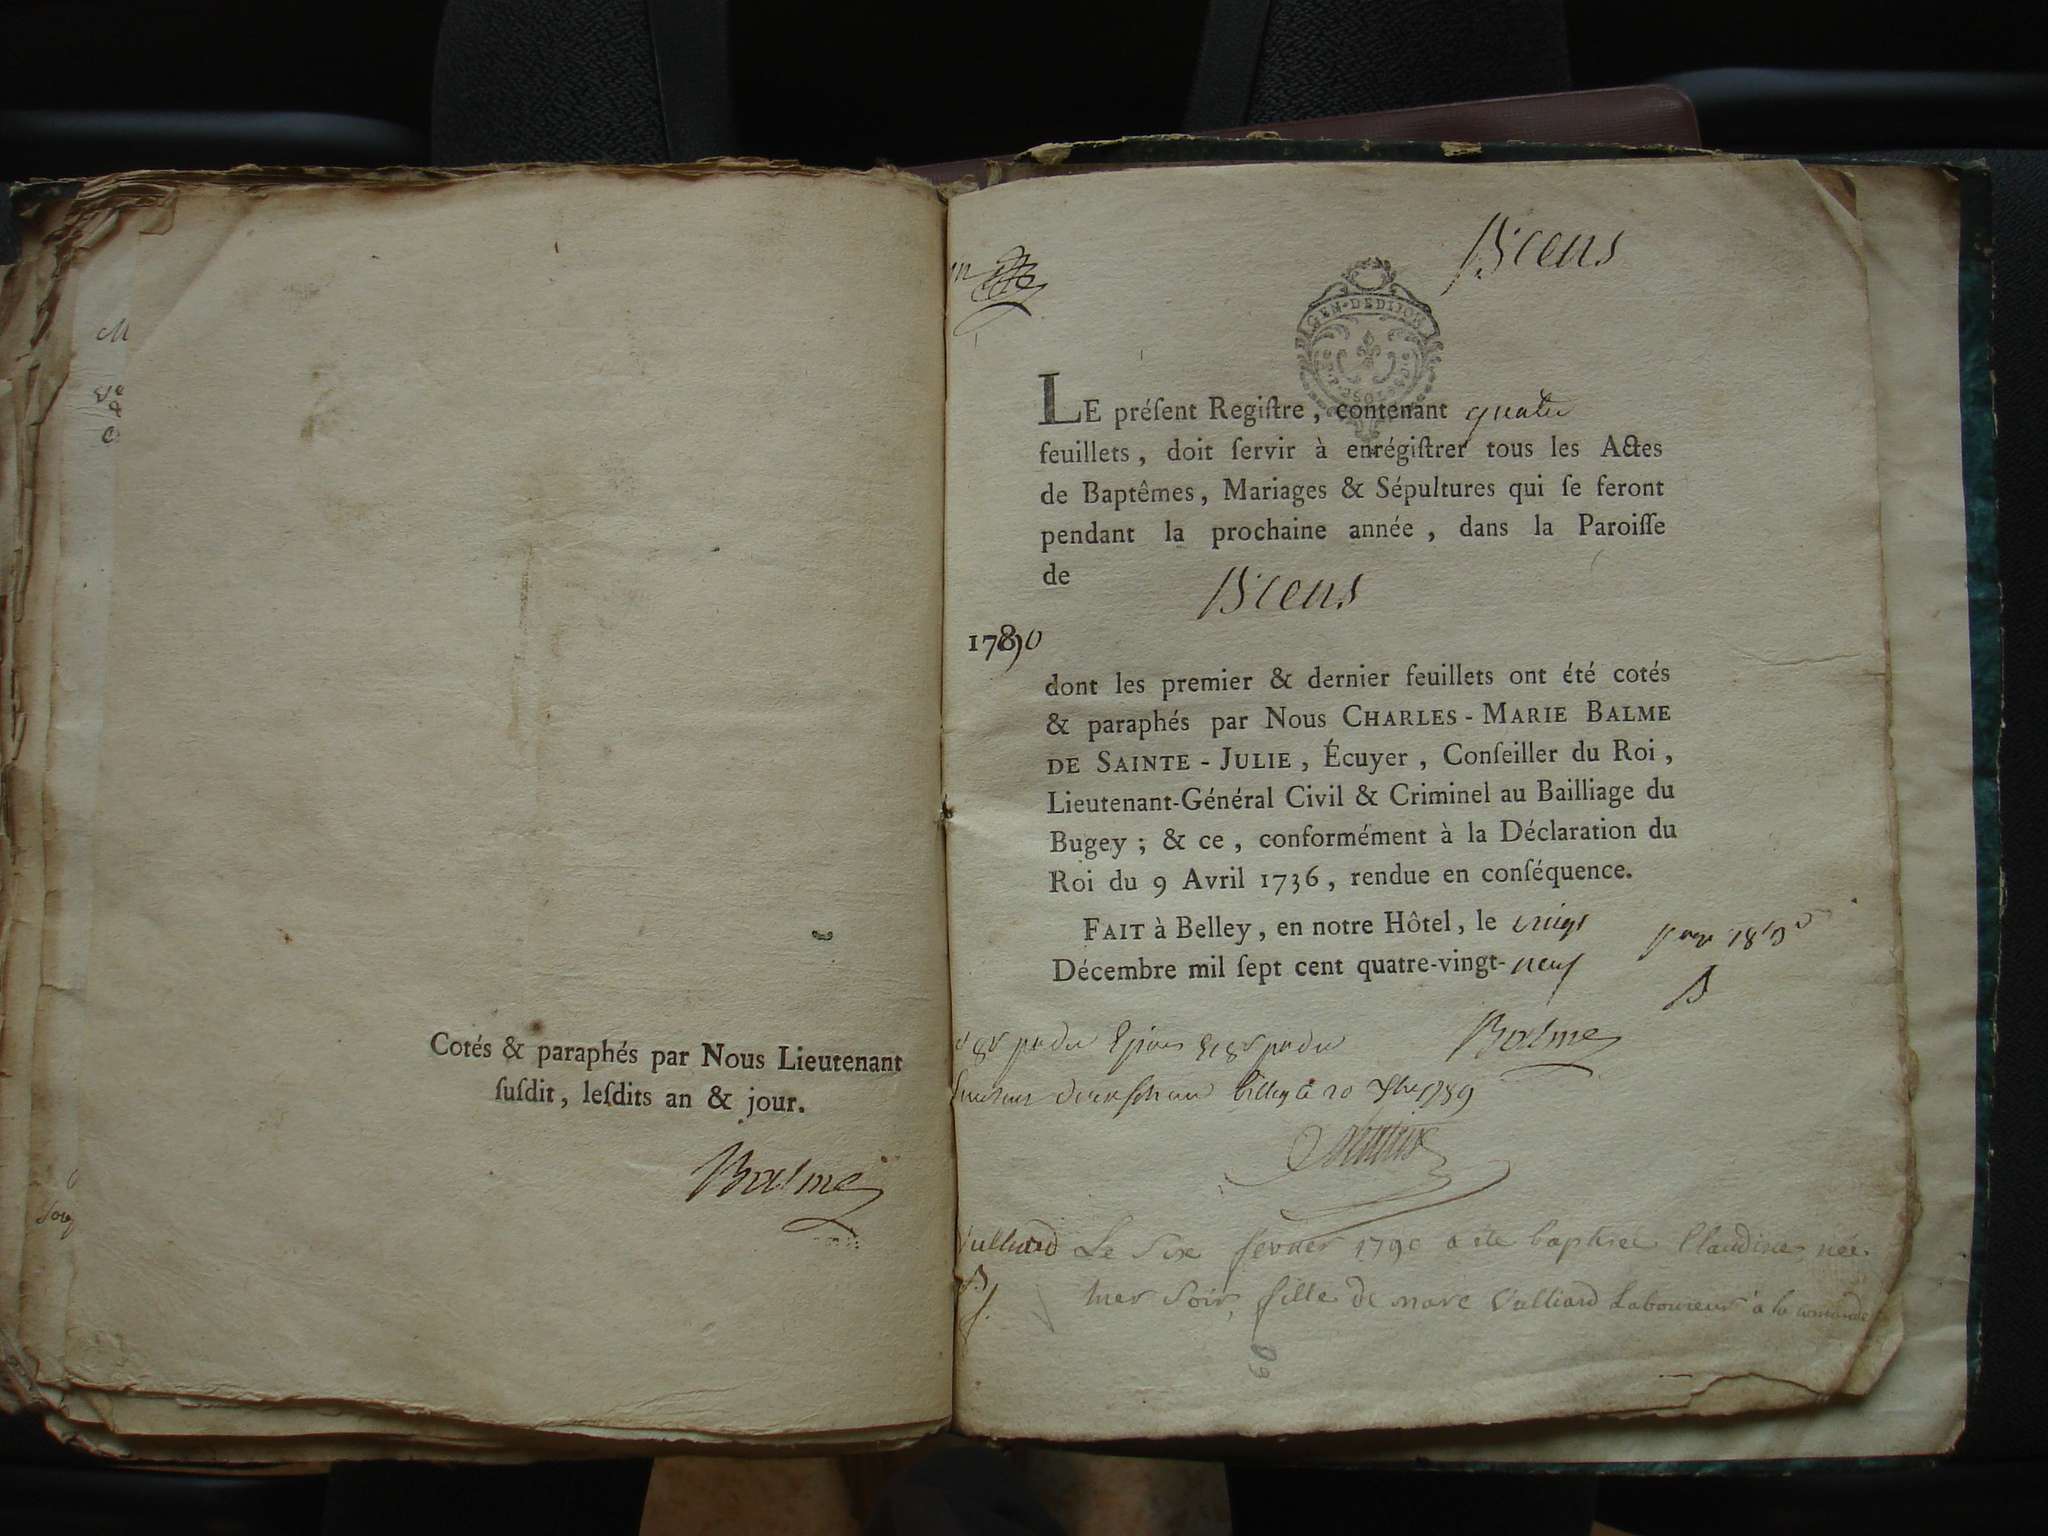 Cotés & paraphés par Nous Lieutenant
ſuſdit, leſdits an & jour.
Balme
Bcens
GEN·DEDIJON
LE préſent Regiſtre, contenant quatre
feuillets, doit ſervir à enrégiſtrer tous les Actes
de Baptêmes, Mariages & Sépultures qui ſe feront
pendant la prochaine année, dans la Paroiſſe
de Bcens
1790
dont les premier & dernier feuillets ont été cotés
& paraphés par Nous CHARLES-MARIE BALME
DE SAINTE-JULIE, Écuyer, Conſeiller du Roi,
Lieutenant-Général Civil & Criminel au Bailliage du
Bugey; & ce, conformément à la Déclaration du
Roi du 9 Avril 1736, rendue en conſéquence.
FAIT à Belley, en notre Hôtel, le vingt
Décembre mil ſept cent quatre-vingt-neuf
Balme
belley le 20 1789
Vulliard Le Six fevrier 1790 a ete baptisée Claudine, née
hier Soir, fille de marc Vulliard Laboureur à la